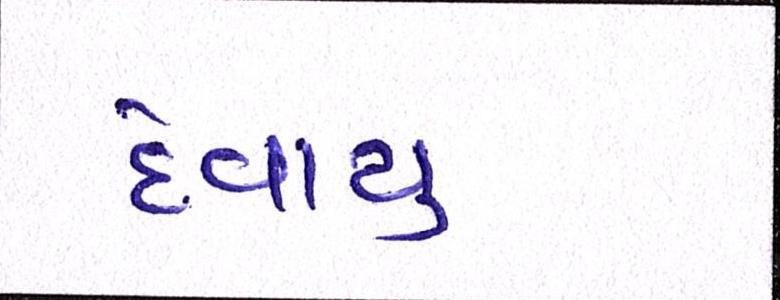 દેવાયુ